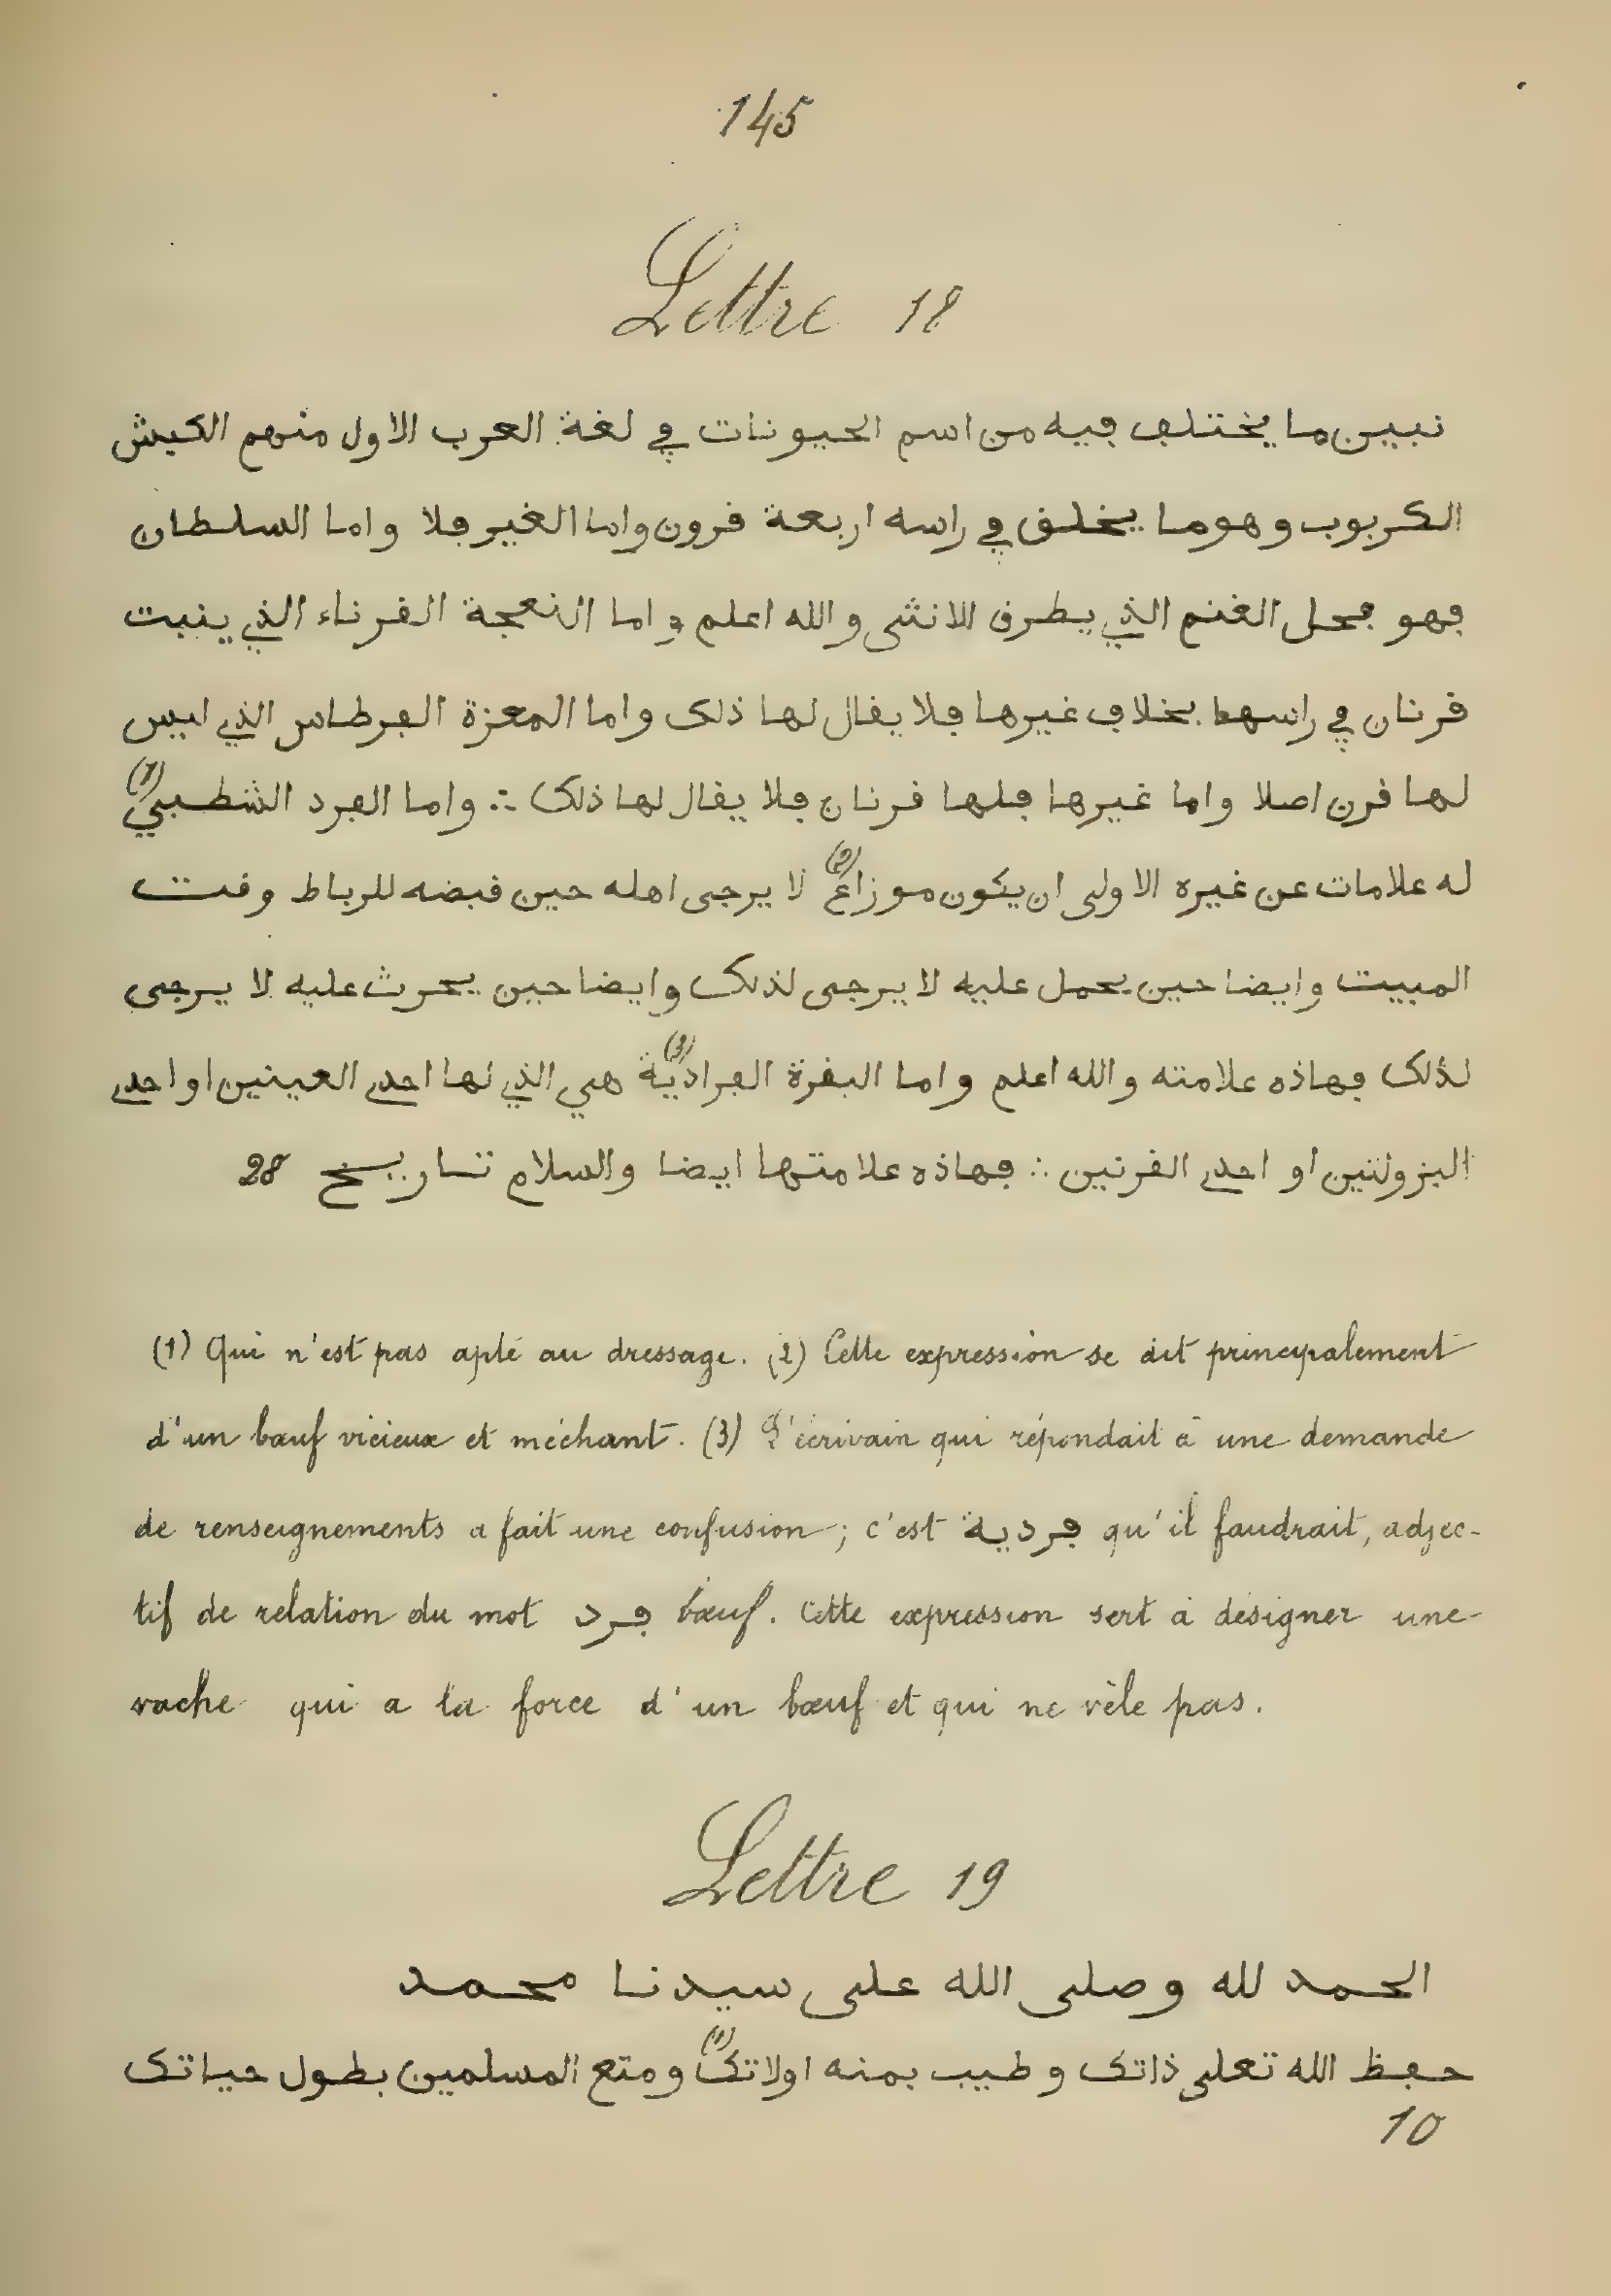 145
Lettre 18
نبين ما يختلف فيه من اسم الحيونات في لغة العرب الاول منهم الكبش
الكربوب وهو ما يخلق في راسه اربعة قرون واما الغير فلا واما السلطان
فهو فحل الغنم الذي يطرق للانثى والله اعلم و اما النعجة القرناء الذي ينبت
قرنان في راسها بخلاف غيرها فلا يقال لها ذلك واما المعزة الفرطاس الذي ليس
لها قرن اصلا واما غيرها فلها قرنان فلا يقال لها ذلك ∴ واما الفرد الشطبي (1)
له علامات عن غيره الاولى ان يكون موزاع (2) لا يرجى اهله حين قبضه للرباط وقت
المبيت وايضا حين يحمل عليه لا يرجى لذلك وايضا حين يحرث عليه لا يرجى
لذلك فهاذه علامته والله اعلم واما البقرة الفرادية (3) هي الذي لها احدى العينين او احدى
البزولتين او احدى القرنين ∴ فهاذه علامتها ايضا والسلام تاريخ 28
(1) Qui n'est pas apte au dressage. (2) Cette expression se dit principalement
d'un bœuf vicieux et méchant. (3) L'écrivain qui répondait à une demande
de renseignements a fait une confusion ; c'est فردية qu'il faudrait, adjec-
tif de relation du mot فرد bœuf. Cette expression sert à désigner une
vache qui a la force d'un bœuf et qui ne vèle pas.
Lettre 19
الحمد لله وصلى الله على سيدنا محمد
حفظ الله تعلى ذاتك وطيب بمنه اولاتك (1) ومتع المسلمين بطول حياتك
10